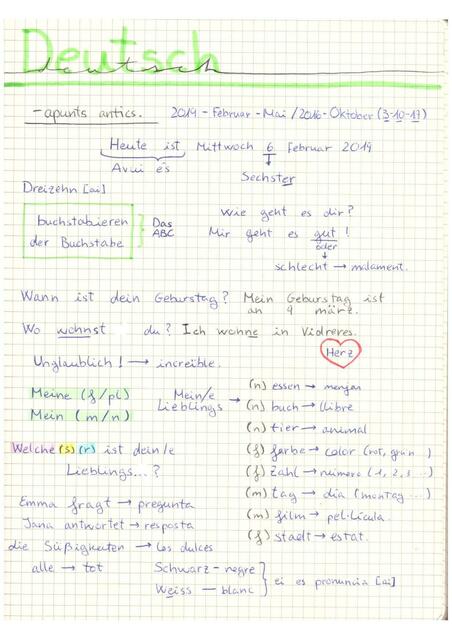 Deutsch
deutsch
-apunts antics. 2014 - Februar - Mai / 2016 - Oktober (3-10-17)
Heute ist Mittwoch 6 Februar 2014
Avui és
Sechster
Dreizehn [ai]
buchstabieren
der Buchstabe
Das
ABC
Wie geht es dir?
Mir geht es gut!
oder
schlecht → malament.
Wann ist dein Geburstag? Mein Geburstag ist
an 9 març.
Wo wohnst du? Ich wohne in Vidreres.
Unglaublich! → increible.
Herz
Meine (f/pl)
Mein (m/n)
Mein/e
Lieblings →
(n) essen → menjar
(n) buch → llibre
(n) tier → animal
(f) farbe → color (rot, grün..)
(f) zahl → número (1, 2, 3...)
(m) tag → dia (montag...)
(m) film → pel·lícula.
(f) stadt → estat.
Welche (s) (r) ist dein/e
Lieblings...?
Emma fragt → pregunta
Jana antwortet → resposta
die Süßigkeiten → les dulces
alle → tot
Schwarz - negre
Weiss - blanc
ei es pronuncia [ai]